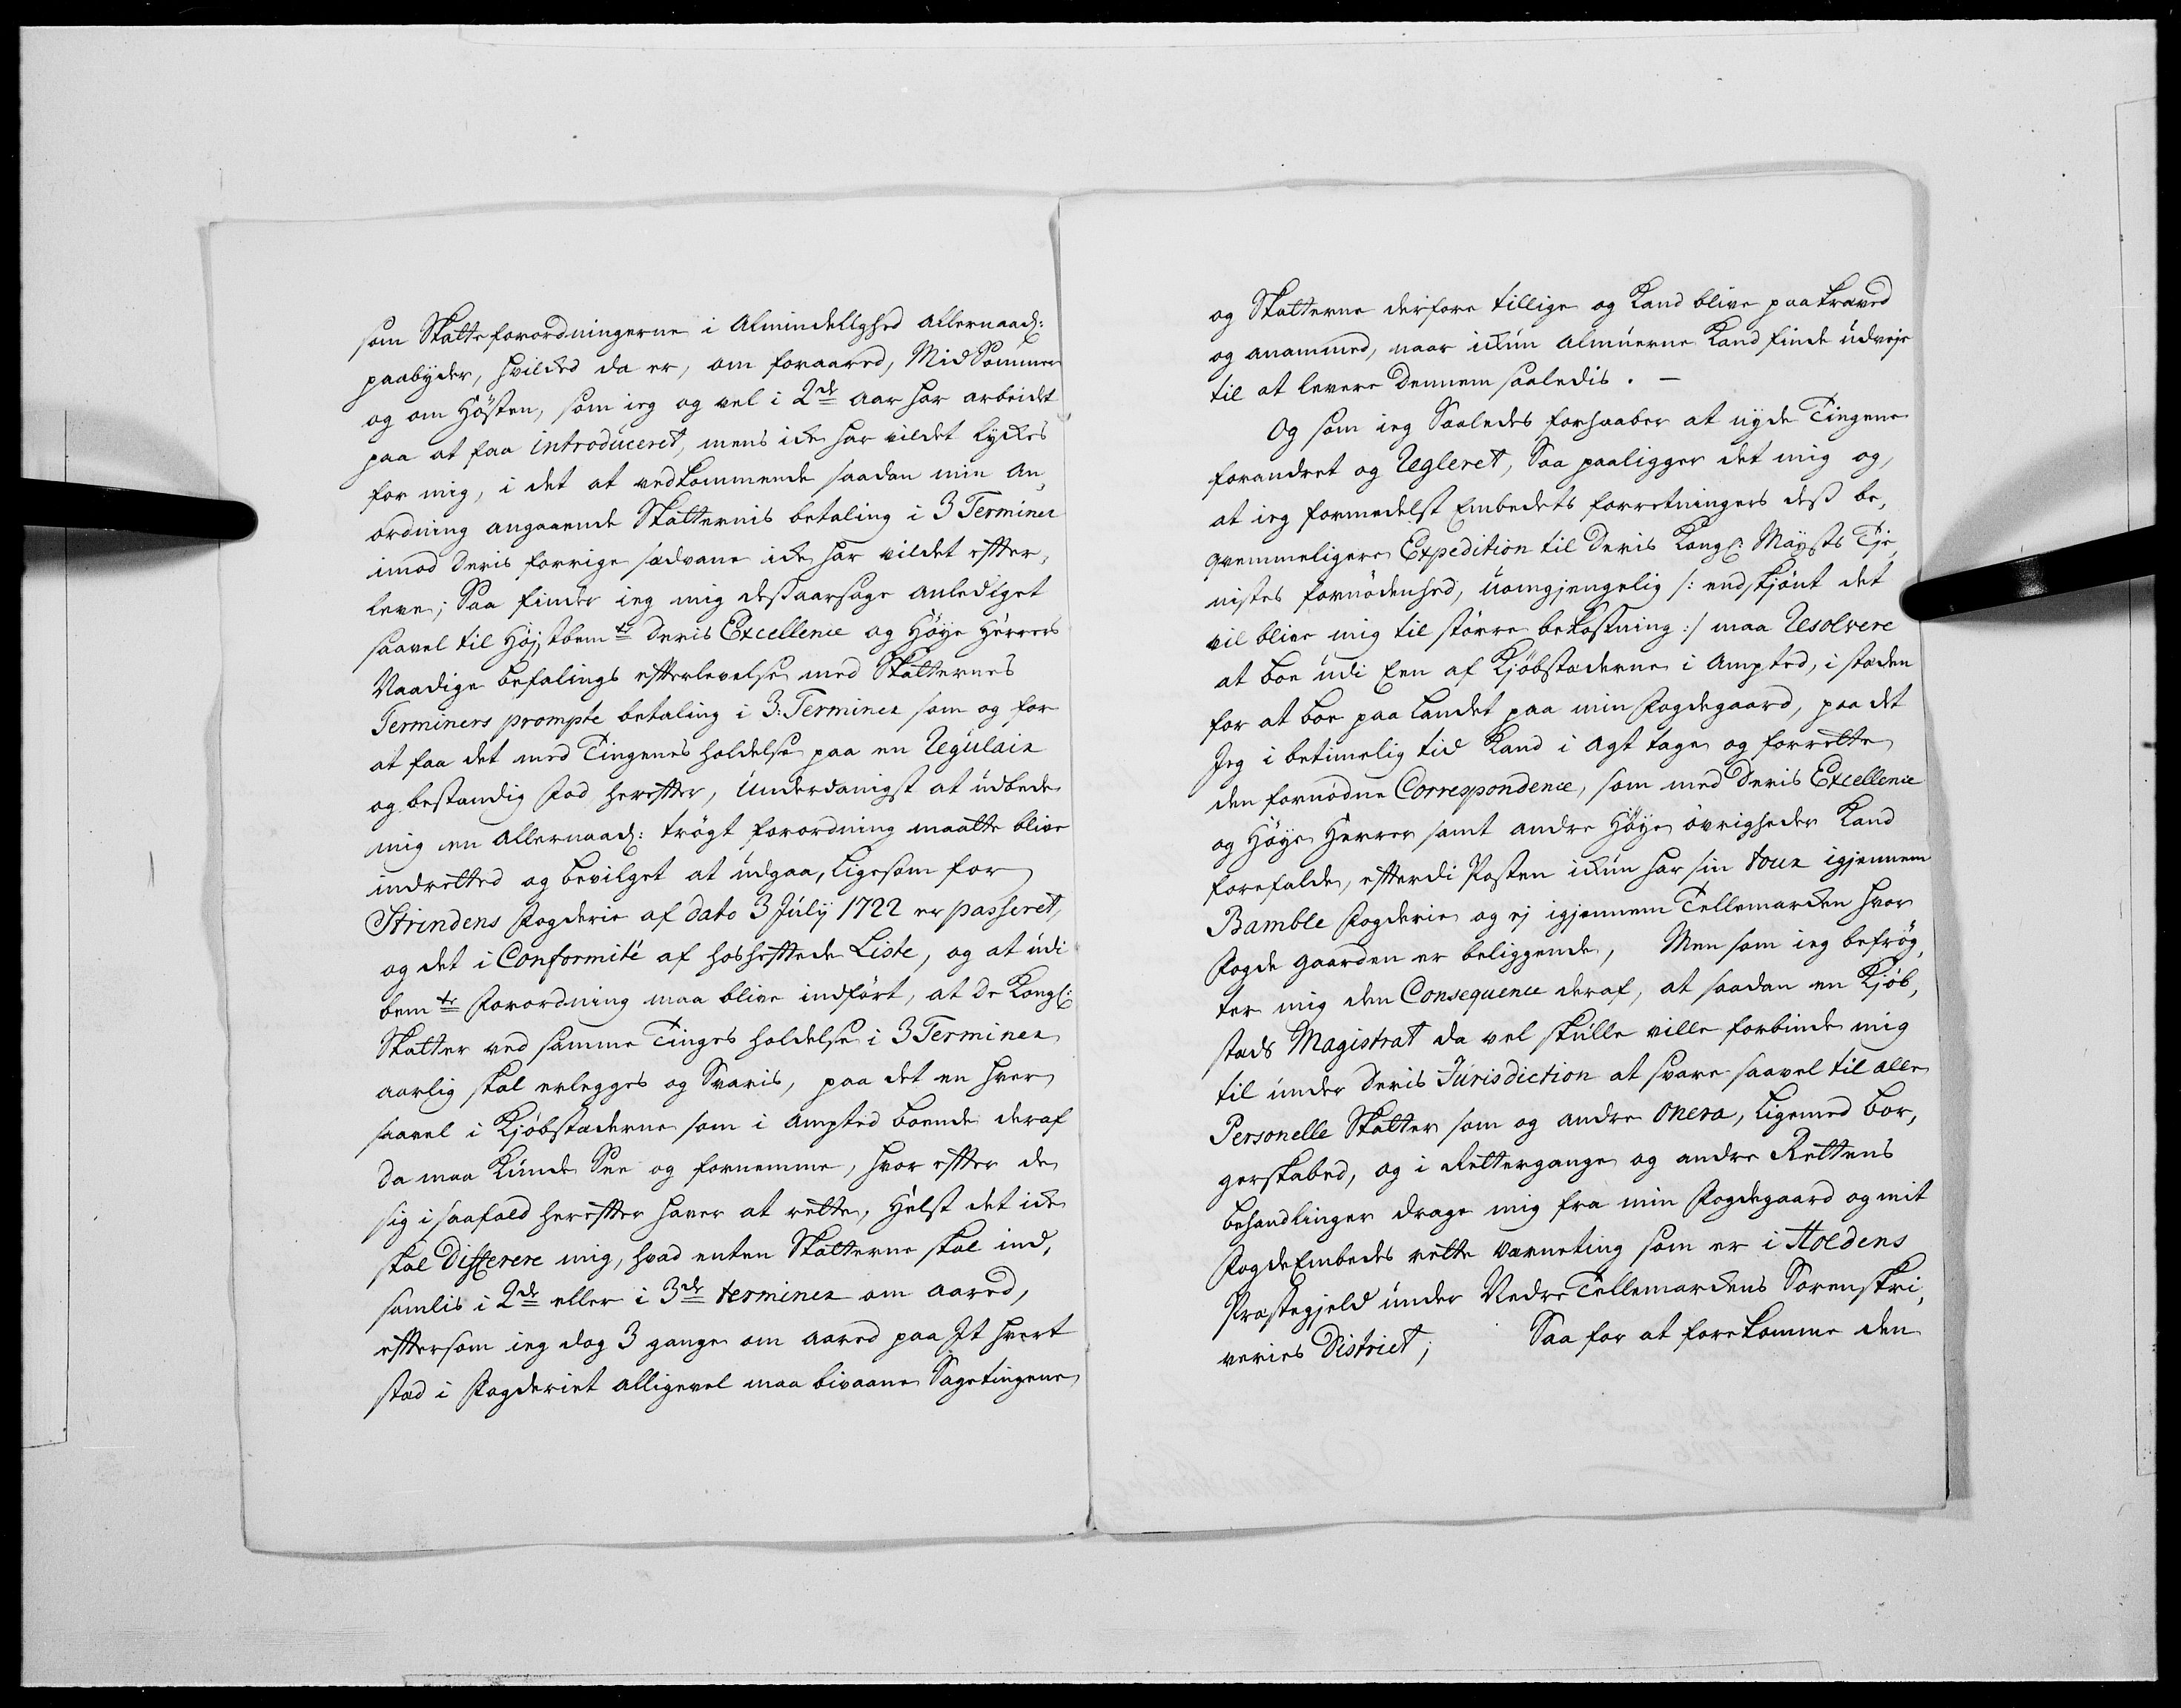 som Skatteforordningerne i Almindelighed allernaad:
paabyder, hvilcked da er, om foraared, MidSommer
og om Høsten, som ieg og vel i 2de aar har arbeidet
paa at faa introduceret, mens icke har vildet lyckes
for mig, i det at vedkommende saadan min An,
ordning angaaende Skatternis betaling i 3 Terminer
imod deris forrige sædvane icke har vildet efter,
leve; Saa finder ieg mig desaarsage anlediget
saavel til Højstbemte Deris Excellence og Høye Herrers
Naadige befalings efterlevelse med Skatternes
Terminers prompte betaling i 3: Terminer som og for
at faa det med Tingenes holdelse paa en Regulair
og bestandig Fod herefter, Underdanigst at udbede
mig en allernaad: trøgt forordning maatte blive
indretted og bevilget at udgaa, ligesom for
Strindens Fogderie af dato 3 July 1722 er passeret,
og det i Conformité af hosheftede Liste, og at udi
bemte Forordning maa blive indført, at de Kongl:
Skatter ved samme Tinges holdelse i 3 Terminer
aarlig skal erlegges og Svaris, paa det en hver
saavel i Kjøbstæderne som i Ampted boende deraf
da maa kunde See og fornemme, hvor efter de
sig i saafald herefter haver at rette, Helst det icke
skal Differere mig, hvad enten Skatterne skal ind,
samlis i 2de eller i 3de terminer om aared,
eftersom ieg dog 3 gange om aared paa It hvert
stæd i Fogderiet alligevel maa bivaane Sagetingene
og Skatterne derfore tillige og Kand blive paakraved
og anammed, naar ickun Almuerne Kand finde udveje
til at levere dennem saaledis. —
Og som ieg Saaledes forhaaber at nyde Tingene
forandret og Regleret, Saa paaligger det mig og,
at ieg formedelst Embedets forretningers dess be,
qvemmeligere Expedition til Deris Kongl: Mayts Tje,
nistes fornødenhed, uomgjengelig /: endskjønt det
vil blive mig til større bekostning :/ maa Resolvere
at boe udi Een af Kjøbstæderne i Ampted, i stæden
for at boe paa Landet paa min Fogdegaard, paa det
Jeg i betimelig tid Kand i agt tage og forrette
den fornødne Correspondence, som med Deris Excellence
og Høye Herrer samt andre Høye øvrigheder Kand
forefalde, efterdi Posten ickun har sin tour igjennem
Bamble Fogderie og ej igjennem Tellemarcken hvor
Fogde gaarden er beliggende, Men som ieg befrøg,
ter mig den Consequence deraf, at saadan en Kjøb,
stæds Magistrat da vel skulle ville forbinde mig
til under deris Jurisdiction at svare saavel til alle
Personelle Skatter som og andre Onera, ligemed bor,
gerskabed, og i Rettergange og andre Rettens
behandlinger drage mig fra min Fogdegaard og mit
FogdeEmbeds rette Værneting som er i Holdens
Præstegjeld under Nedre Tellemarckens Sorenskri,
veries District; Saa for at forekomme den